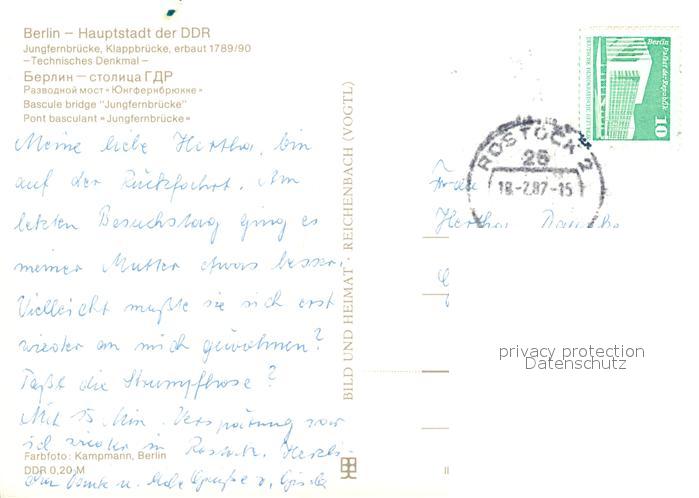 Berlin – Hauptstadt der DDR
Jungfernbrücke, Klappbrücke, erbaut 1789/90
–Technisches Denkmal–
Берлин – столица ГДР
Разводной мост «Юнгфернбрюкке»
Bascule bridge "Jungfernbrücke"
Pont basculant «Jungfernbrücke»
Meine liebe Hertha, bin
auf der Rückfahrt. Am
letzten Besuchstag ging es
meiner Mutter etwas besser.
Vielleicht mußte sie sich erst
wieder an mich gewöhnen?
Paßt die Strumpfhose?
Mit 15 Min. Verspätung war
ich wieder in Rostock. Herzli-
chen Dank u. liebe Grüße v. Gisela
Farbfoto: Kampmann, Berlin
DDR 0,20 M
BILD UND HEIMAT · REICHENBACH (VOGTL)
Berlin Palast der Republik
DEUTSCHE DEMOKRATISCHE REPUBLIK
10
ROSTOCK 2
26
18.-2.87-15
Frau
Hertha
privacy protection
Datenschutz